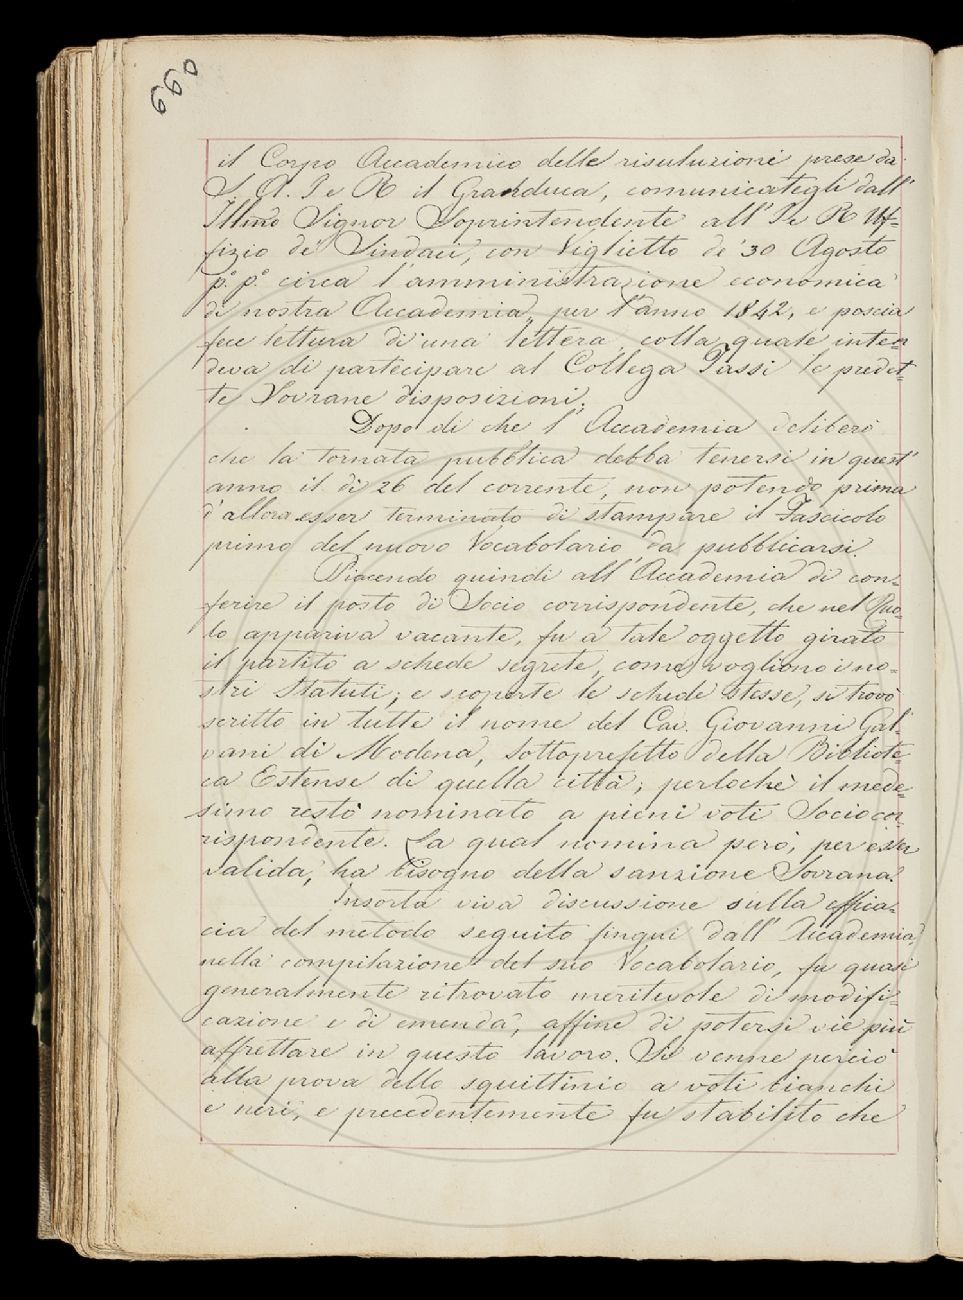 099
il Corpo Accademico delle risoluzioni prese da
S. A. I e R il Granduca, comunicategli dall'
Illmo Signor Soprintendente all' I e R Uf-
fizio de' Sindaci, con Viglietto de' 30 Agosto
p.° p.° circa l'amministrazione economica
di nostra Accademia, per l'anno 1842, e poscia
fece lettura di una lettera, colla quale inten-
deva di partecipare al Collega Tassi le predet-
te Sovrane disposizioni.
Dopo di che l' Accademia deliberò
che la tornata pubblica debba tenersi in quest'
anno il dì 26 del corrente, non potendo prima
d'allora esser terminato di stampare il Fascicolo
primo del nuovo Vocabolario, da pubblicarsi.
Piacendo quindi all' Accademia di con-
ferire il posto di Socio corrispondente, che nel Ruo-
lo appariva vacante, fu a tale oggetto girato
il partito a schede segrete, come vogliono i no-
stri Statuti; e scoperte le schede stesse, si trovò
scritto in tutte il nome del Cav. Giovanni Gal-
vani di Modena, Sottoprefetto della Bibliote-
ca Estense di quella città; perlochè il mede-
simo restò nominato a pieni voti Socio cor-
rispondente. La qual nomina però, per esser
valida, ha bisogno della sanzione Sovrana.
Insorta viva discussione sulla effica-
cia del metodo seguito finqui dall' Accademia
nella compilazione del suo Vocabolario, fu quasi
generalmente ritrovato meritevole di modifi-
cazione e di emenda, affine di potersi vie più
affrettare in questo lavoro. Si venne perciò
alla prova dello squittinio a voti bianchi
e neri, e precedentemente fu stabilito che